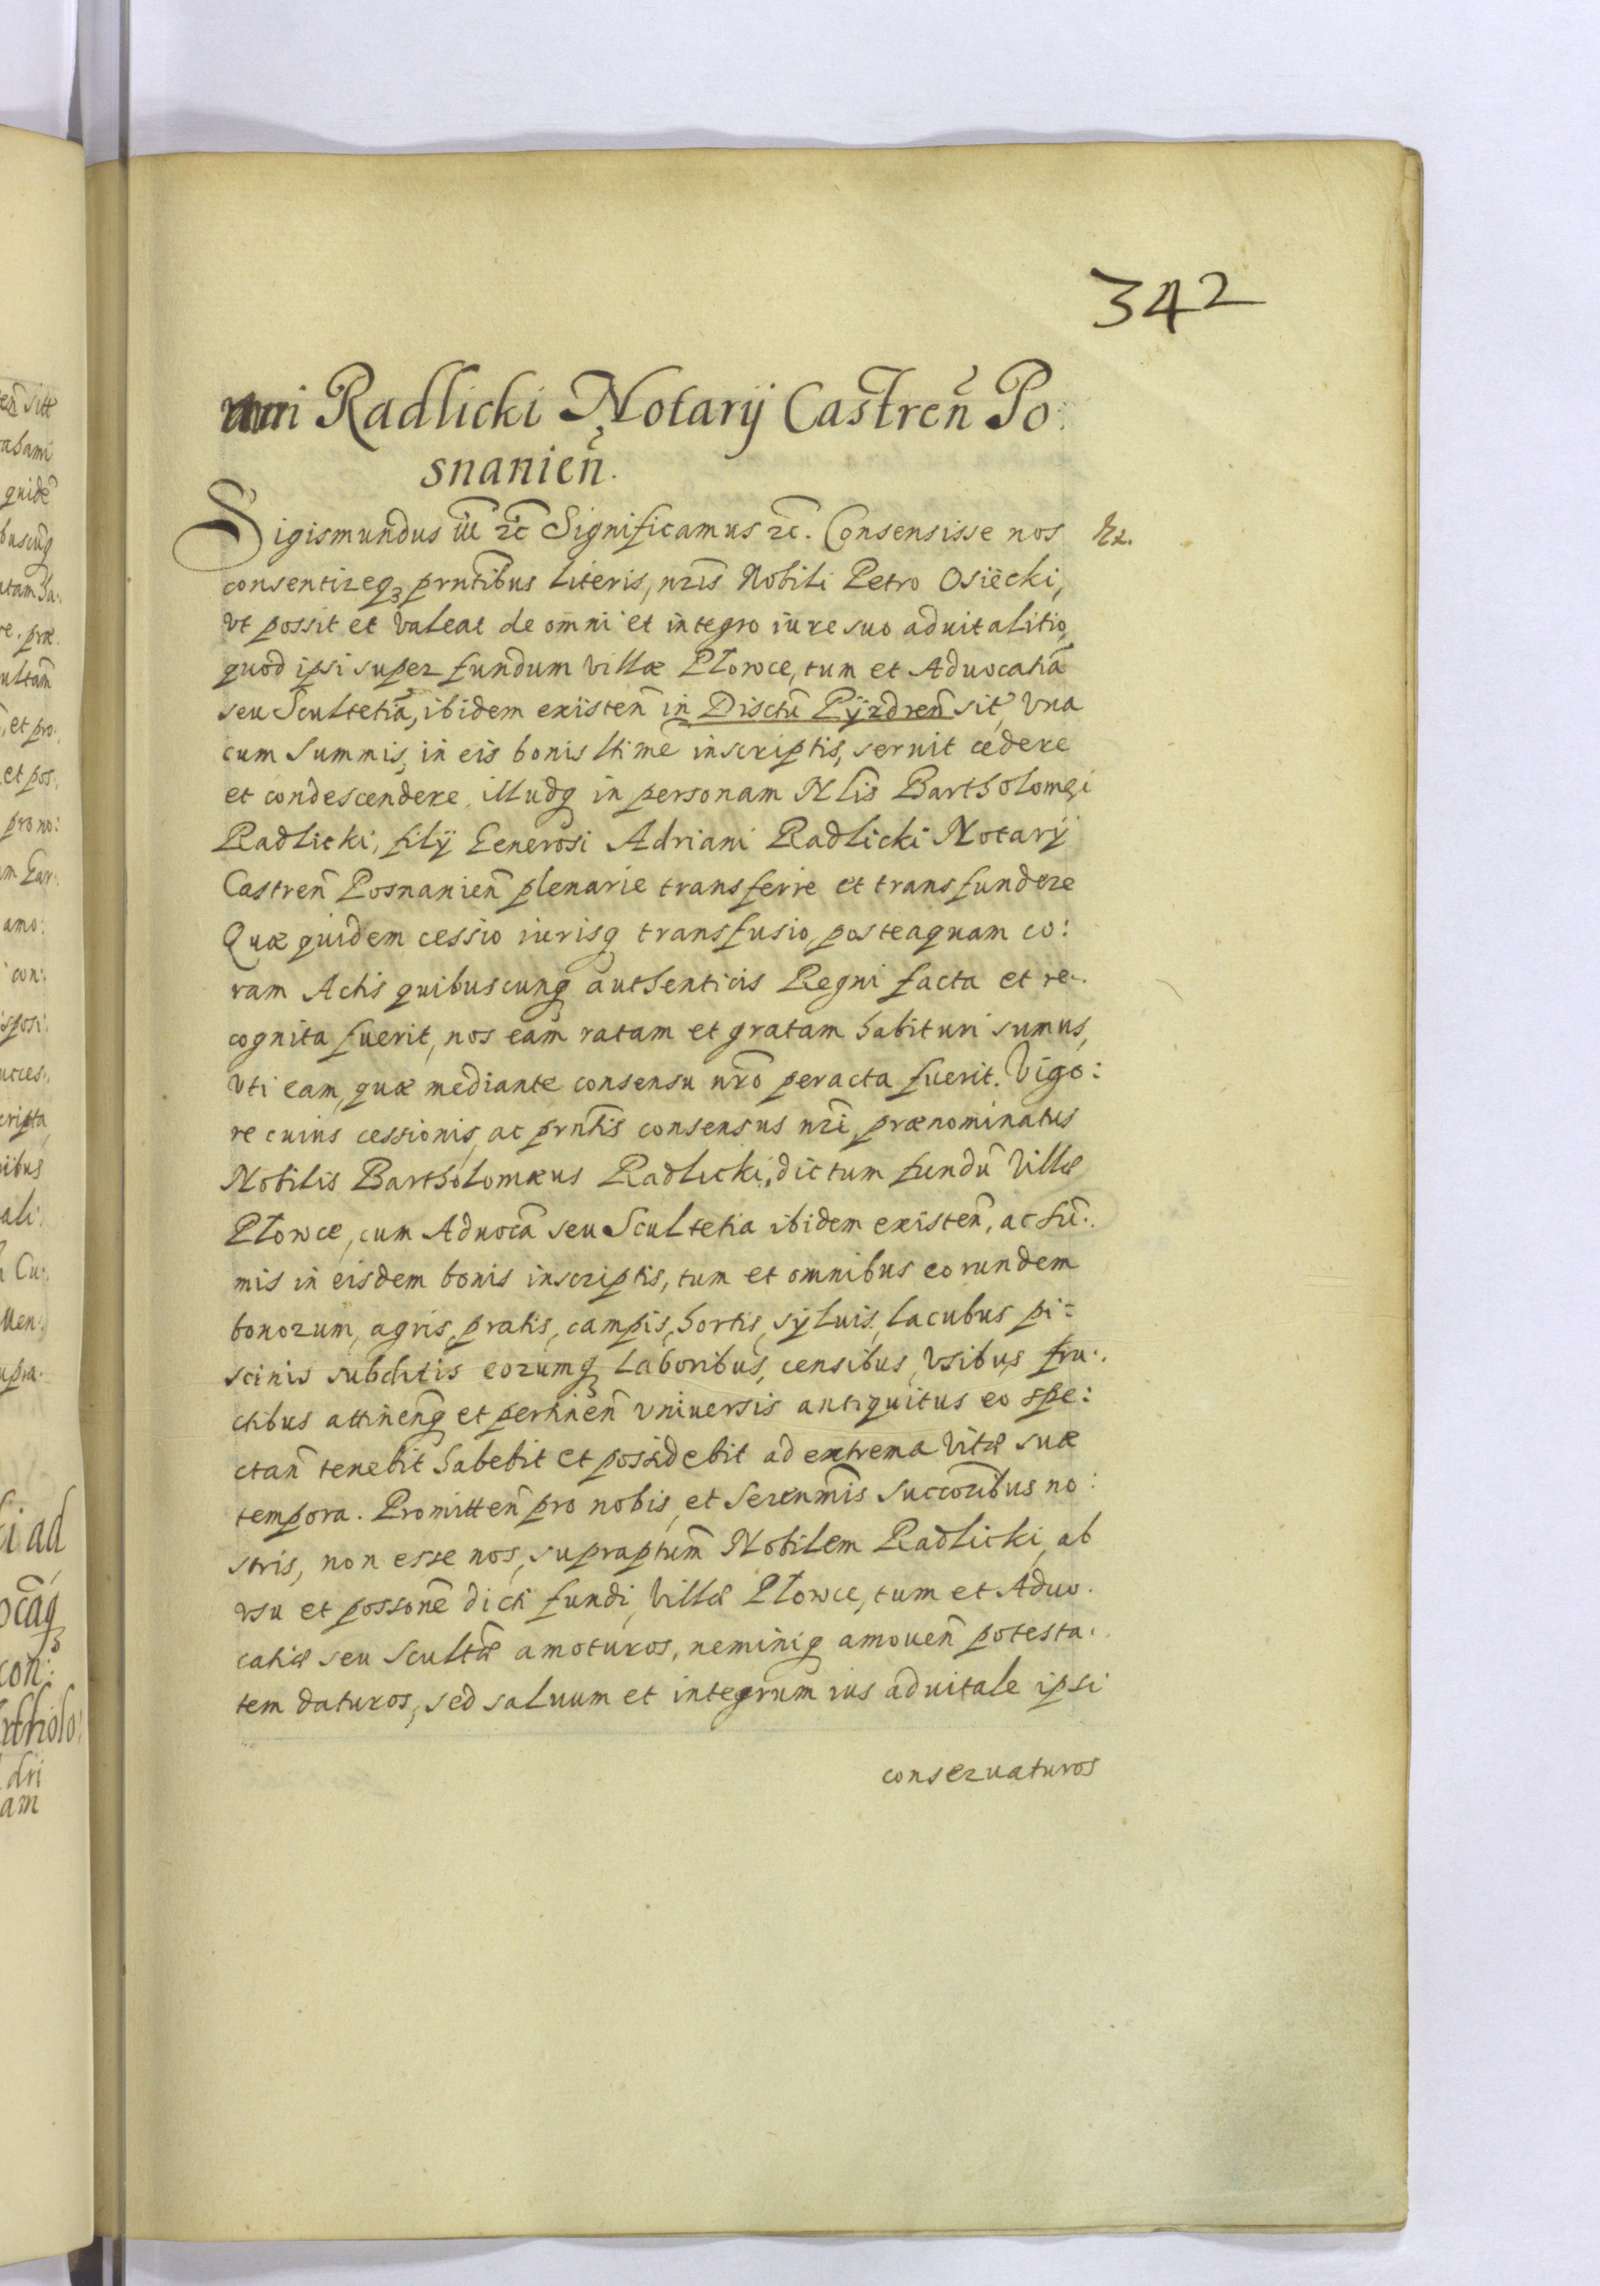 342
ani Radlicki Notarij Castren̄ Po:
snanien̄.
Sigismundus iii ꝛc Significamus ꝛc. Consensisse nos
consentireq₃ prn̄tibus literis, nr̄is Nobili Petro Osiecki,
vt possit et valeat de omni et integro iure suo aduitalitio,
quod ipsi super fundum villæ Płowce, tum et Aduocatiā
seu Scultetiā, ibidem existen̄ in Disctū Pÿzdren̄ sit, vna
cum summis, in eis bonis ltime inscriptis, seruit cedere
et condescendere, illudq in personam Nlis Bartholomei
Radlicki, filij Generosi Adriani Radlicki Notarij
Castren̄ Posnanien̄ plenarie transferre et transfundere
Quæ quidem cessio iurisq transfusio, posteaquam co:
ram Actis quibuscunq authenticis Regni facta et re:
cognita fuerit, nos eam ratam et gratam habituri sumus,
vti eam, quæ mediante consensu nr̄o peracta fuerit. Vigo:
re cuius cessionis, ac prn̄tis consensus nr̄i, prænominatus
Nobilis Bartholomæus Radlicki, dictum fundū villæ
Płowce, cum Aduocā seu Scultetia ibidem existen̄, ac sū:
mis in eisdem bonis inscriptis, tum et omnibus eorundem
bonorum, agris, pratis, campis, hortis, syluis, lacubus pi:
scinis subditis eorumq laboribus, censibus, vsibus fru:
ctibus attinen̄q et pertinen̄ vniuersis antiquitus eo spe:
ctan̄ tenebit habebit et possidebit ad extrema vitæ suæ
tempora. Promitten̄ pro nobis, et Serenm̄is Succoribus no:
stris, non esse nos, supraptum̄ Nobilem Radlicki, ab
vsu et possonē dicti fundi, villæ Płowce, tum et Aduo:
catiæ seu scultæ amoturos, neminiq amouen̄ potesta:
tem daturos, sed saluum et integrum ius aduitale ipsi
conseruaturos